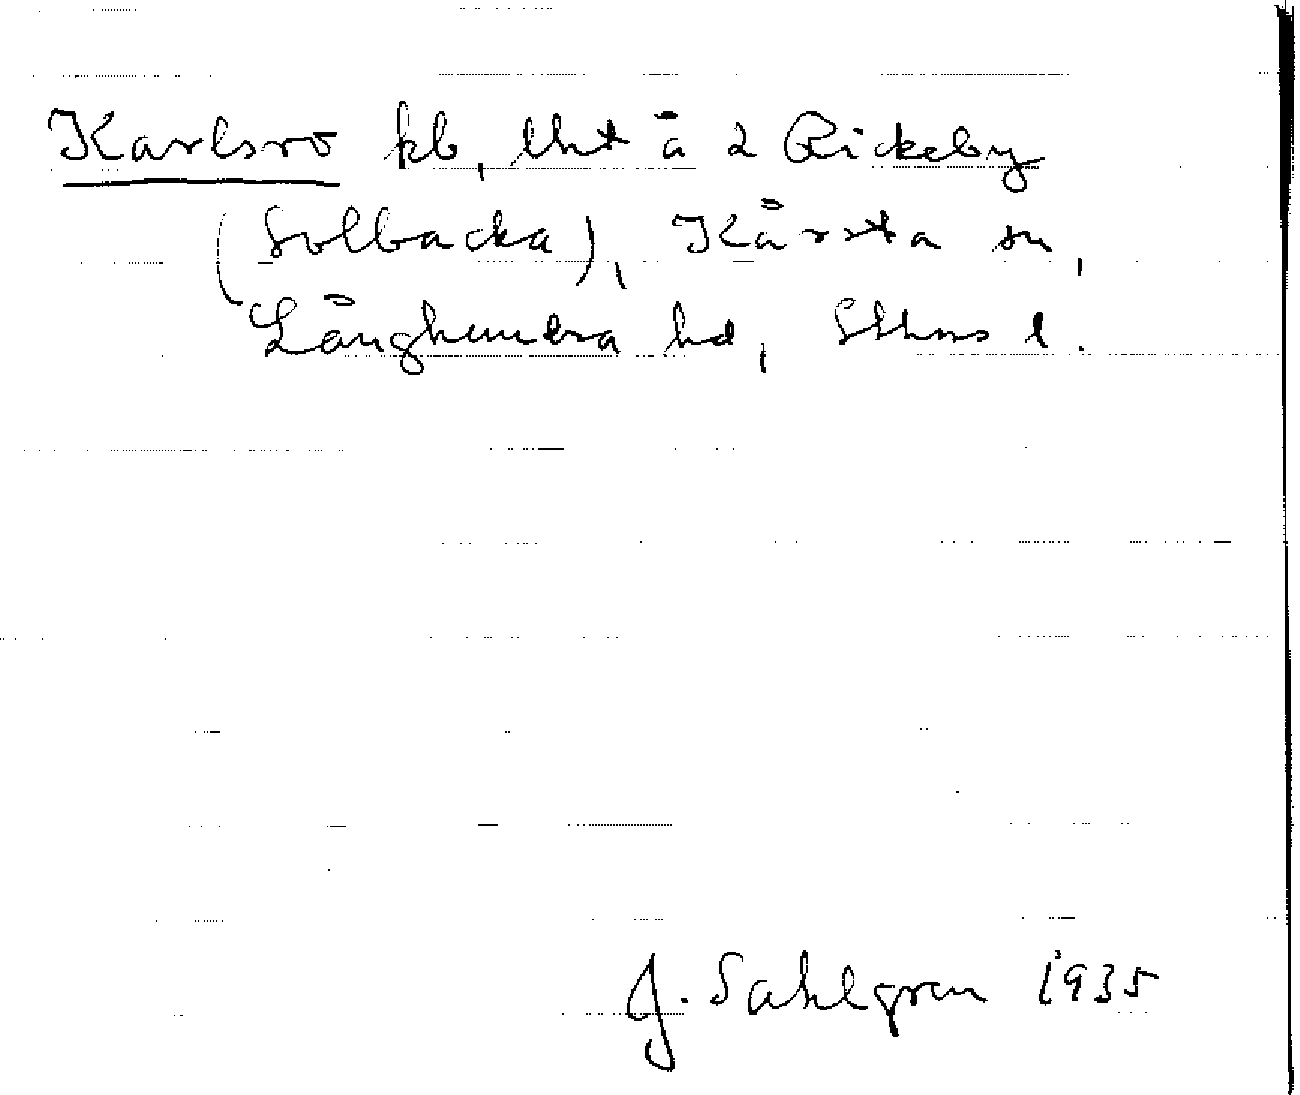 Karlsro kb, lht å 2 Rickeby
(Solbacka), Kårsta sn,
Långhundra hd, Sthms l.
J. Sahlgren 1935